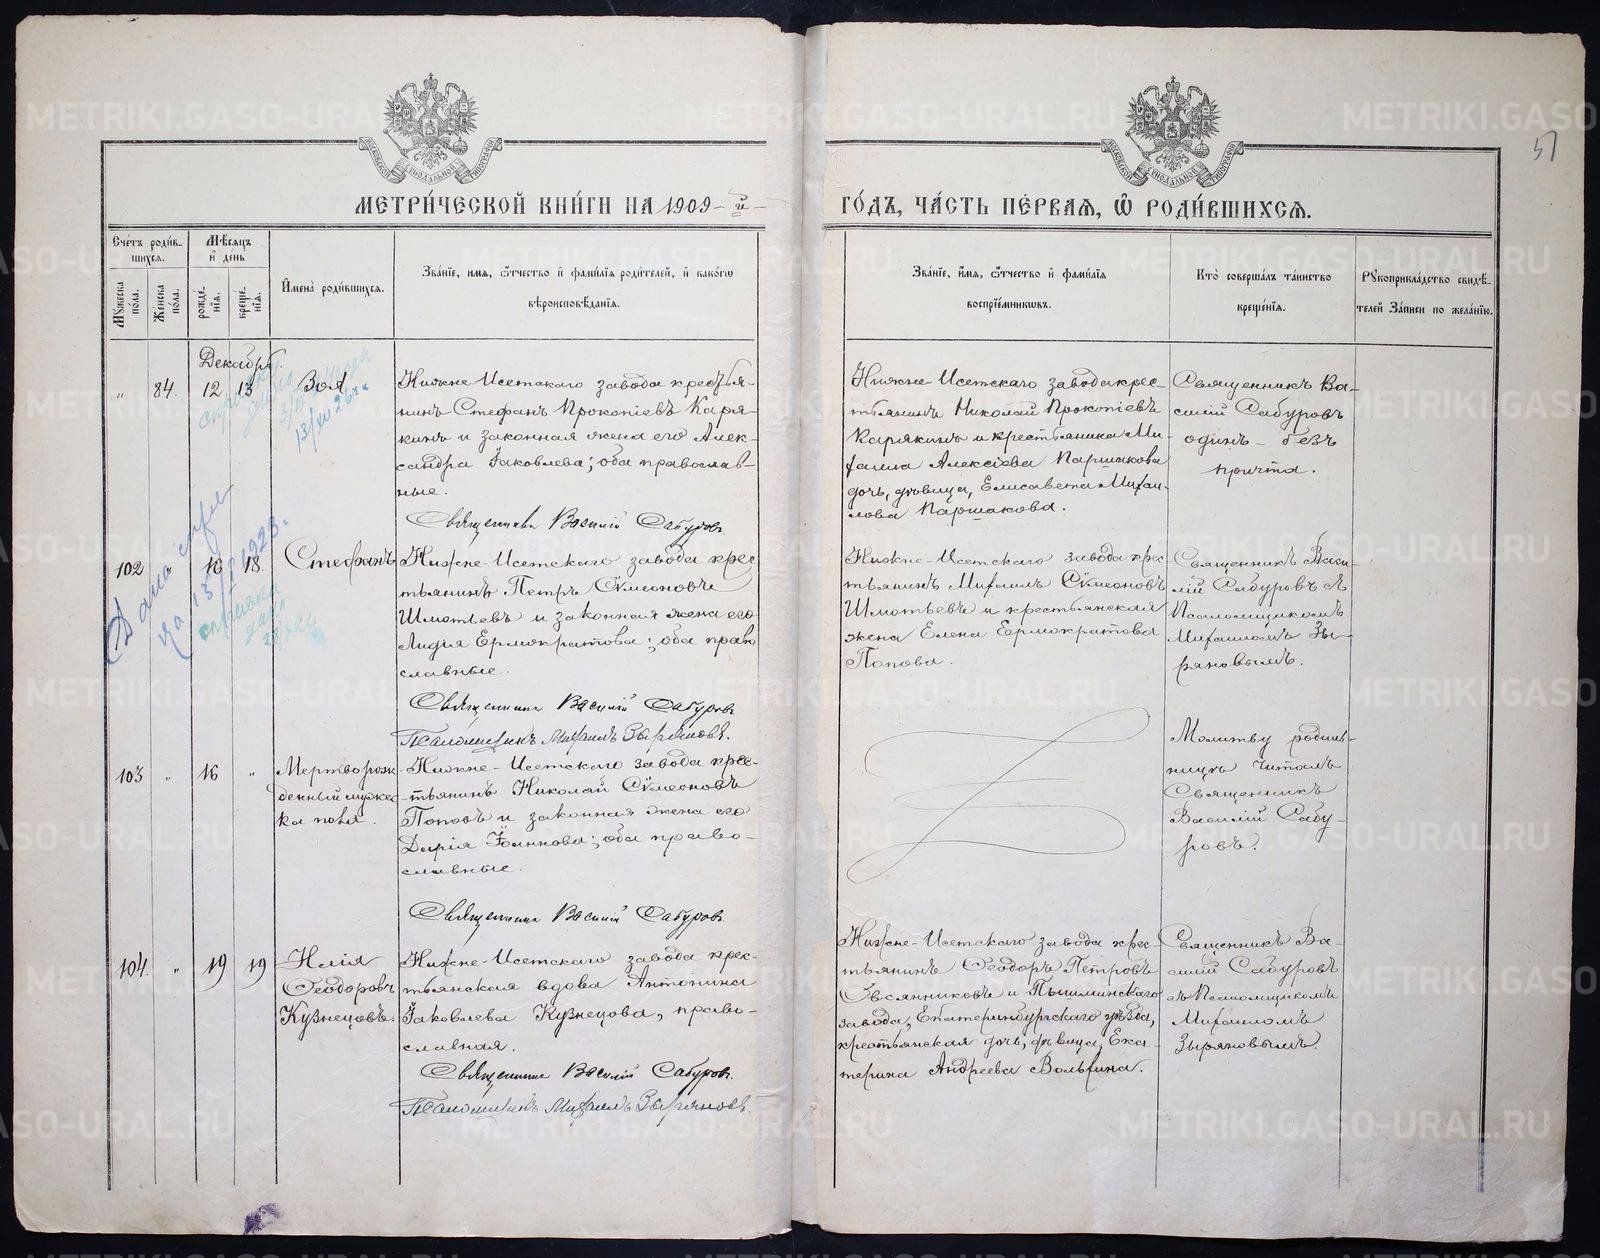 51
МЕТРИ́ЧЕСКОЙ КНИ́ГИ НА 1909-й-
ГО́ДЪ, ЧА́СТЬ ПЕ́РВАЯ, Ѡ РОДИ́ВШИХСЯ.
Сче́тъ роди́в-
шихся.
Мѣсяцъ
и́ де́нь
Му́жеска
по́ла.
Же́нска
по́ла.
рожде́-
нїя.
креще́-
нїя.
И҆мена̀ роди́вшихся.
Зва́нїе, и҆мя, ѻ҆тчество и҆ фами́лїя роди́телей, и҆ како́гѡ
вѣроисповѣ́данїя.
Зва́нїе, и҆мя, ѻ҆тчество и҆ фами́лїя
воспрїе́мникѡвъ.
Кто̀ соверша́лъ та́инство
креще́нїя.
Рꙋкоприкла́дство свидѣ́-
телей за́писи по жела́нїю.
Декабрь.
„ 84. 12 13 Зоя
Нижне-Исетскаго завода крестья-
нинъ Стефанъ Прокопіевъ Каря-
кинъ и законная жена его Алек-
сандра Іаковлева; оба православ-
ные.
Священникъ Василій Сабуровъ
Нижне-Исетскаго завода крес-
тьянинъ Николай Прокопіевъ
Карякинъ и крестьянина Ми-
хаила Алексіева Паршакова
дочь, дѣвица, Елисавета Михаи-
лова Паршакова.
Священникъ Ва-
силій Сабуровъ
одинъ - безъ
причта.
справка
13/XII 26 г.
Дана
1923 г.
справка
102 „ 16 18 Стефанъ
Нижне-Исетскаго завода крес-
тьянинъ Петръ Сѵмеоновъ
Шмотьевъ и законная жена его
Лидія Ермократова; оба право
славные.
Священникъ Василій Сабуровъ
Псаломщикъ Михаилъ Зыряновъ.
Нижне-Исетскаго завода крес-
тьянинъ Михаилъ Сѵмеоновъ
Шмотьевъ и крестьянская
жена Елена Ермократова
Попова.
Священникъ Васи-
лій Сабуровъ съ
Псаломщикомъ
Михаиломъ Зы-
ряновымъ.
103 „ 16 „ Мертворож
денный мужес
ка пола.
Нижне-Исетскаго завода крес-
тьянинъ Николай Сѵмеоновъ
Поповъ и законная жена его
Дарія Іоаннова; оба право-
славные.
Священникъ Василій Сабуровъ
Молитву родиль-
ницѣ читалъ
Священникъ
Василій Сабу-
ровъ.
104. „ 19 19 Илія
Ѳеодоровъ
Кузнецовъ.
Нижне-Исетскаго завода крес-
тьянская вдова Антонина
Іаковлева Кузнецова, право-
славная.
Священникъ Василій Сабуровъ.
Псаломщикъ Михаилъ Зыряновъ
Нижне-Исетскаго завода крес-
тьянинъ Ѳеодоръ Петровъ
Овсянниковъ и Пышминскаго
завода, Екатеринбургскаго уѣзда,
крестьянская дочь, дѣвица, Ека-
терина Андреева Вольхина.
Священникъ Ва-
силій Сабуровъ
съ Псаломщикомъ
Михаиломъ
Зыряновымъ.
METRIKI.GASO-URAL.RU